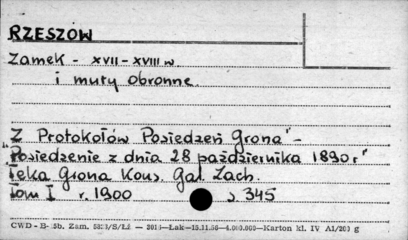 RZESZÓW
Zamek - XVII - XVIII w
i mury obronne.
"Z Protokołów Posiedzeń Grona" -
"Posiedzenie z dnia 28 października 1890 r"
Teka Grona Kons. Gal. Zach.
Tom I r. 1900 s. 345
CWD - B- 5b. Zam. /S/Ł2 — Łak—15.11.50—4.000.000—Karton kl. IV A1/200 g